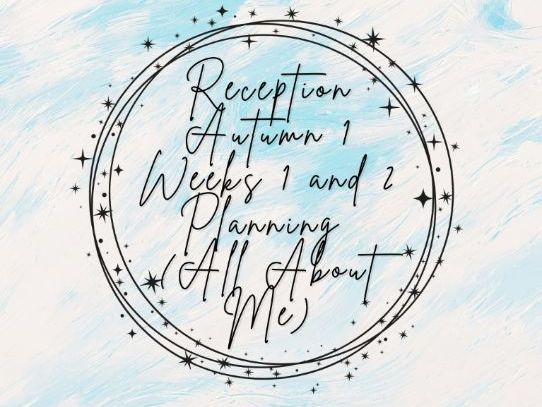 Reception
Autumn 1
Weeks 1 and 2
Planning
(All About
Me)